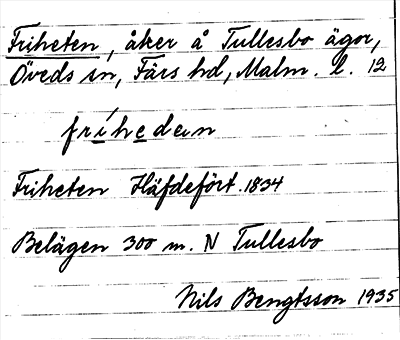 Friheten, åker å Tullesbo ägor,
Öveds sn, Färs hd, Malm. l. 12
fríhedən
Friheten Häfdefört. 1834
Belägen 300 m. N Tullesbo
Nils Bengtsson 1935